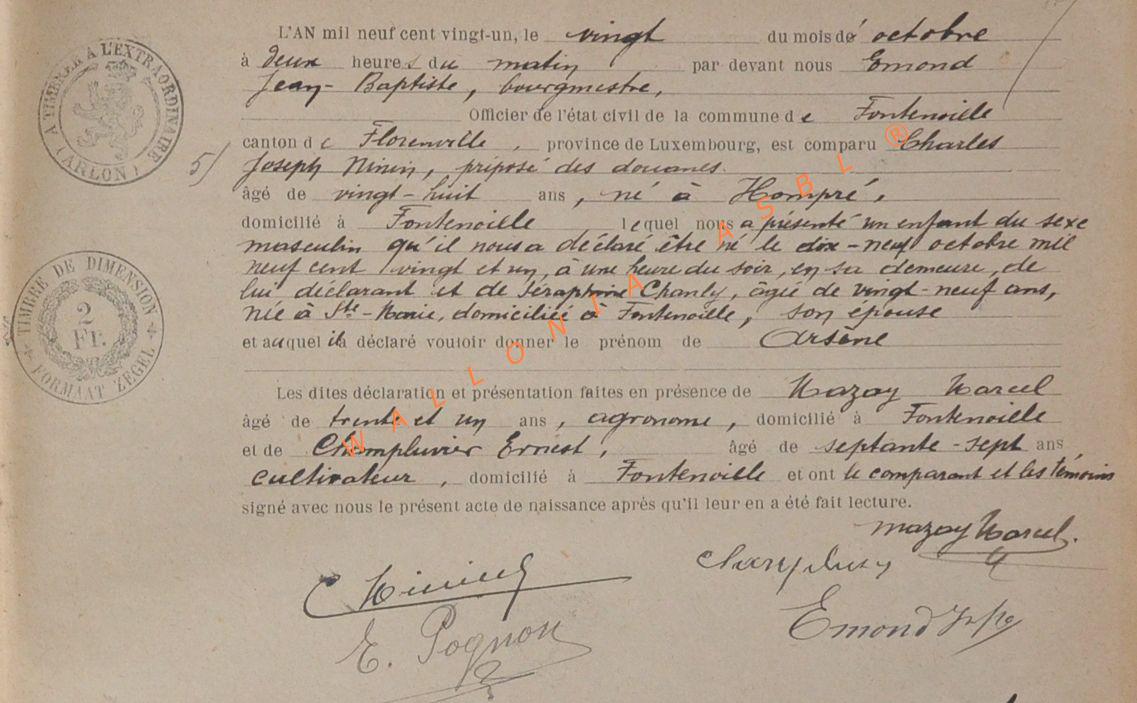 A TIMBRER A L'EXTRAORDINAIRE
(ARLON)
L'AN mil neuf cent vingt-un, le vingt du mois de octobre
à deux heures du matin par devant nous Emond
Jean-Baptiste, bourgmestre,
Officier de l'état civil de la commune de Fontenoille
canton de Florenville, province de Luxembourg, est comparu Charles
5/ Joseph Ninin, préposé des douanes.
âgé de vingt-huit ans, né à Hompré,
domicilié à Fontenoille lequel nous a présenté un enfant du sexe
masculin qu'il nous a déclaré être né le dix-neuf octobre mil
neuf cent vingt et un, à une heure du soir, en sa demeure, de
lui déclarant et de Séraphine Chanly, âgée de vingt-neuf ans,
née à Ste-Marie, domiciliée à Fontenoille, son épouse
et auquel il a déclaré vouloir donner le prénom de Arsène
TIMBRE DE DIMENSION
2
Fr.
FORMAAT ZEGEL
Les dites déclaration et présentation faites en présence de Mazay Marcel
âgé de trente et un ans, agronome, domicilié à Fontenoille
et de Champluvier Ernest, âgé de septante-sept ans
cultivateur, domicilié à Fontenoille et ont le comparant et les témoins
signé avec nous le présent acte de naissance après qu'il leur en a été fait lecture.
Mazay Marcel.
C Ninin
E. Pognon
Emond
WALLONIA ASBL ®